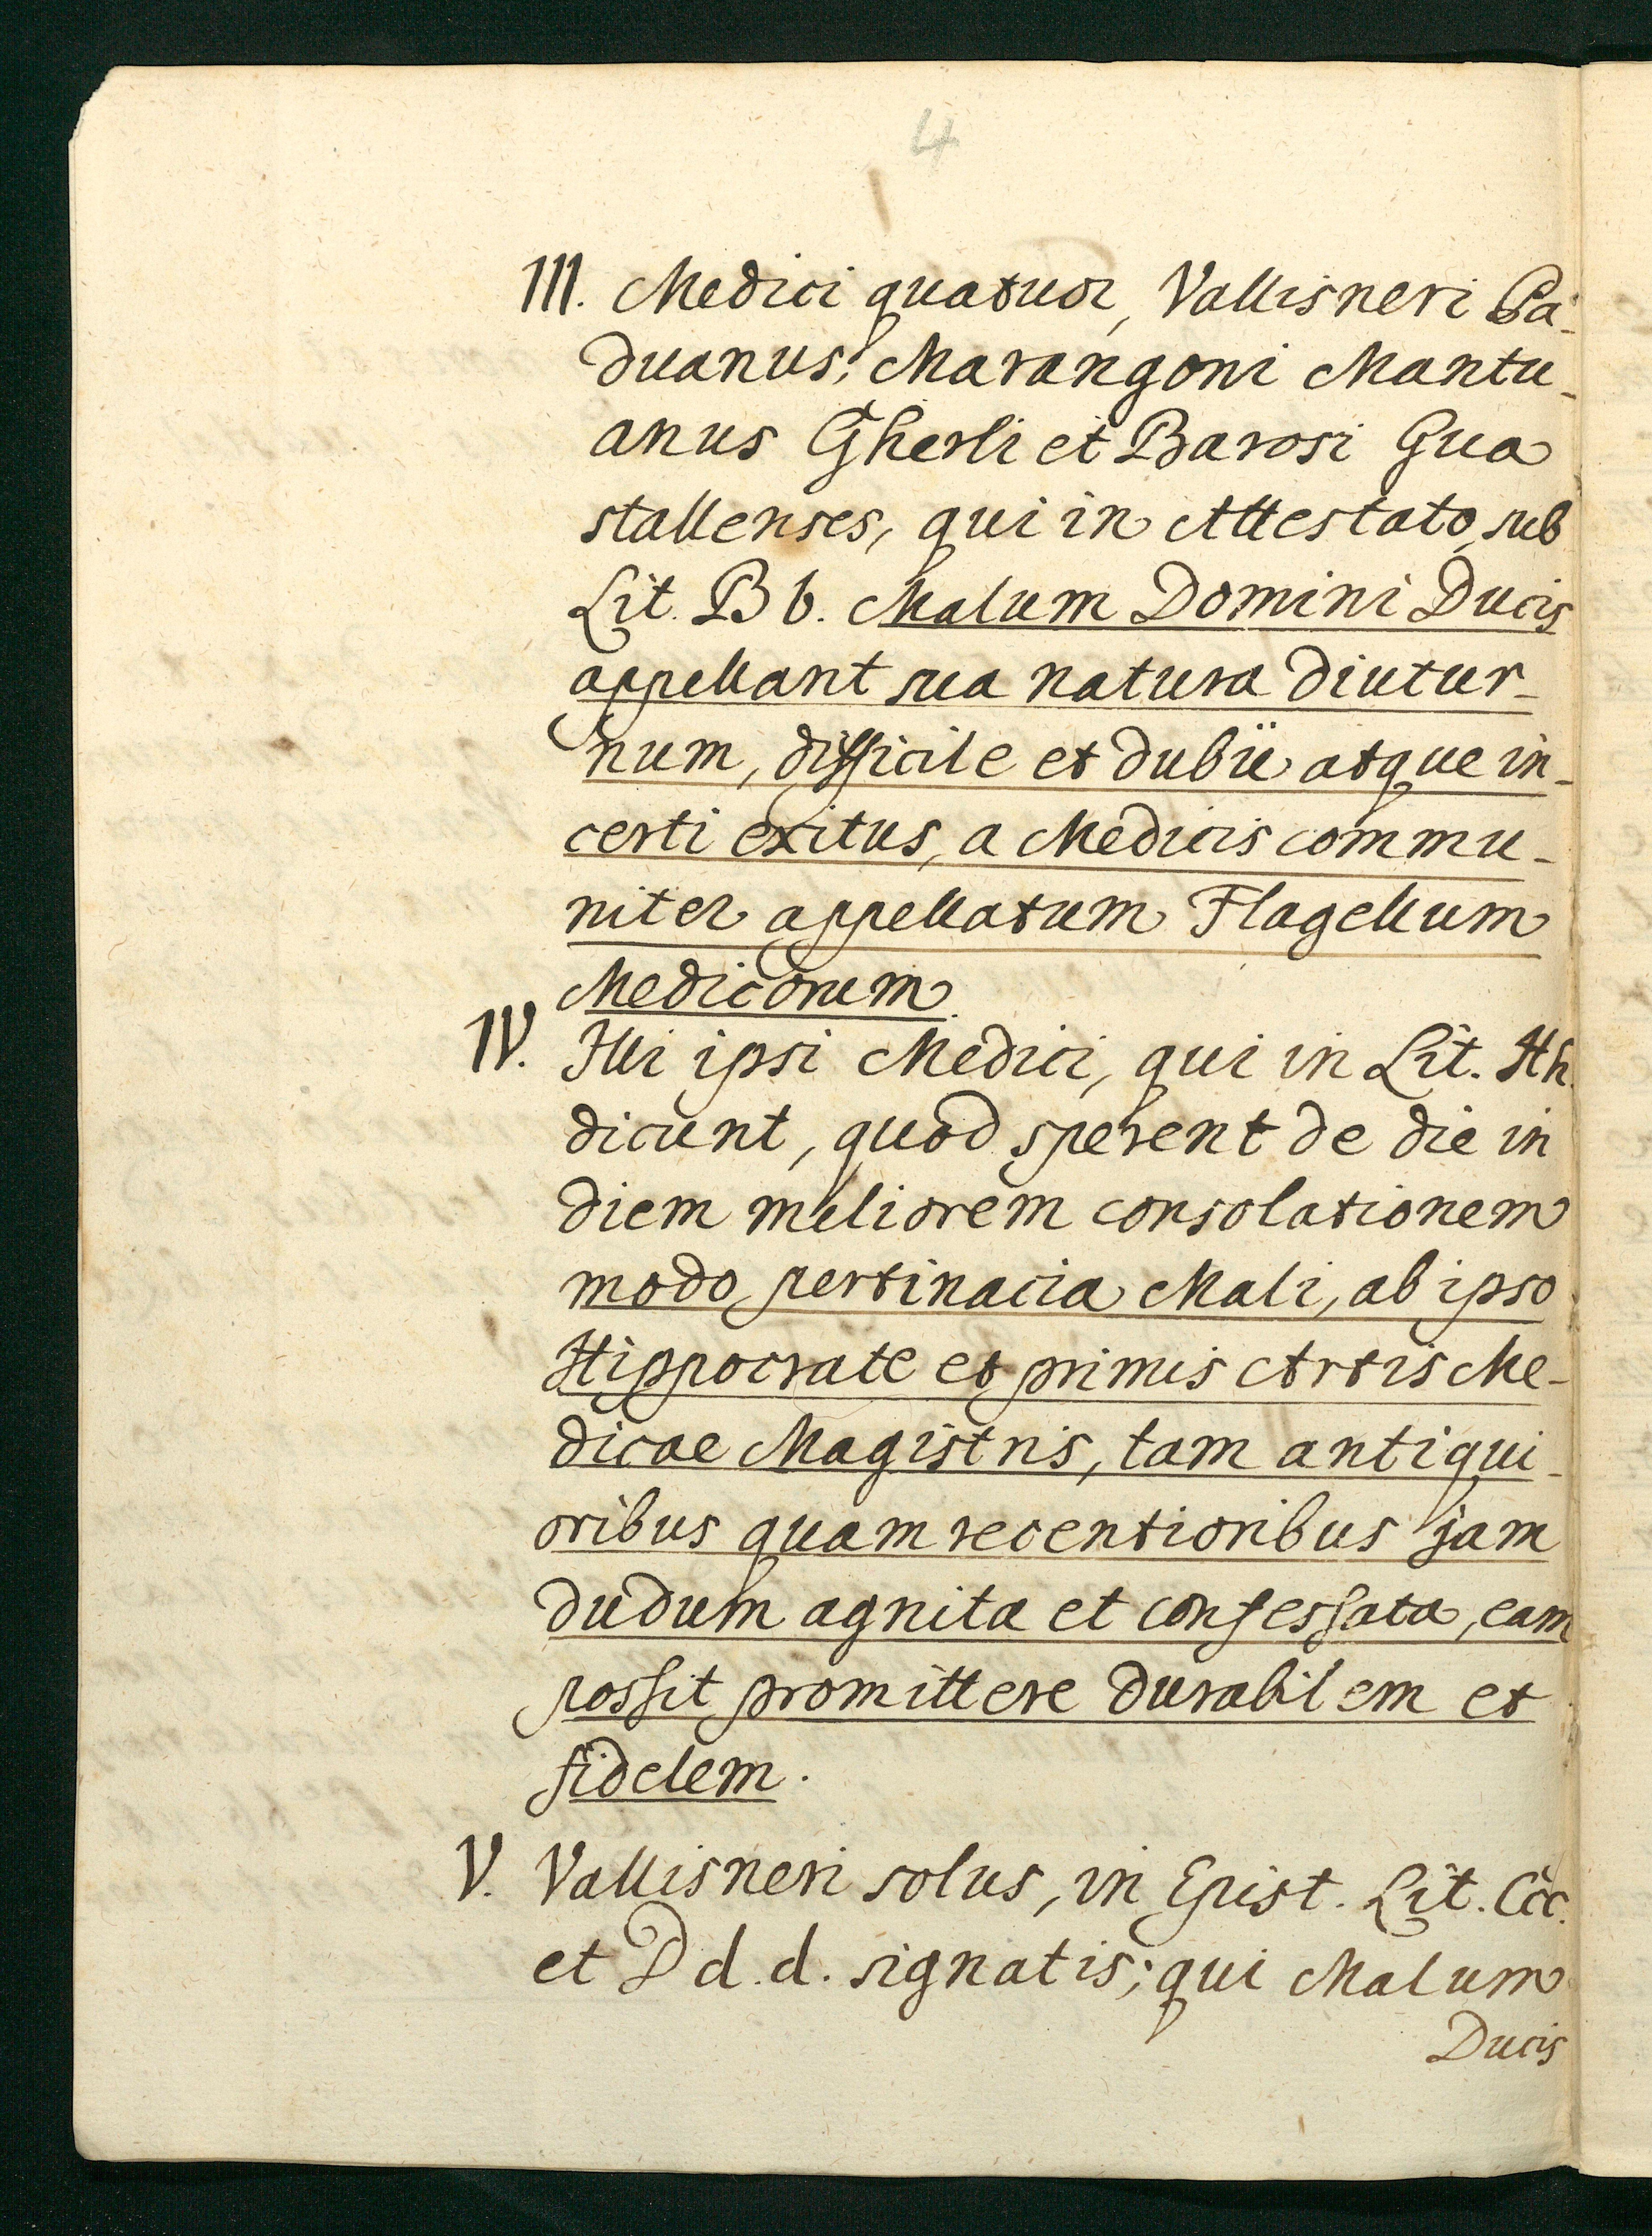 4
III. Medici quatuor, Vallisneri Pa-
duanus; Marangoni Mantu-
anus Gherli et Barosi Gua
stallenses, qui in Attestato, sub
Lit. B b. Malum Domini Ducis
appellant sua natura diutur-
num, difficile et dubii atque in-
certi exitus, a Medicis commu-
niter appellatum Flagellum
Medicorum.
IV. Illi ipsi Medici, qui in Lit. Hh.
dicunt, quod sperent de die in
diem meliorem consolationem
modo pertinacia Mali, ab ipso
Hippocrate et primis Artis Me-
dicae Magistris, tam antiqui-
oribus quam recentioribus jam
dudum agnita et confessata, eam
possit promittere durabilem et
fidelem.
V. Vallisneri solus, in Epist. Lit. Cc c.
et D d. d. signatis; qui Malum
Ducis